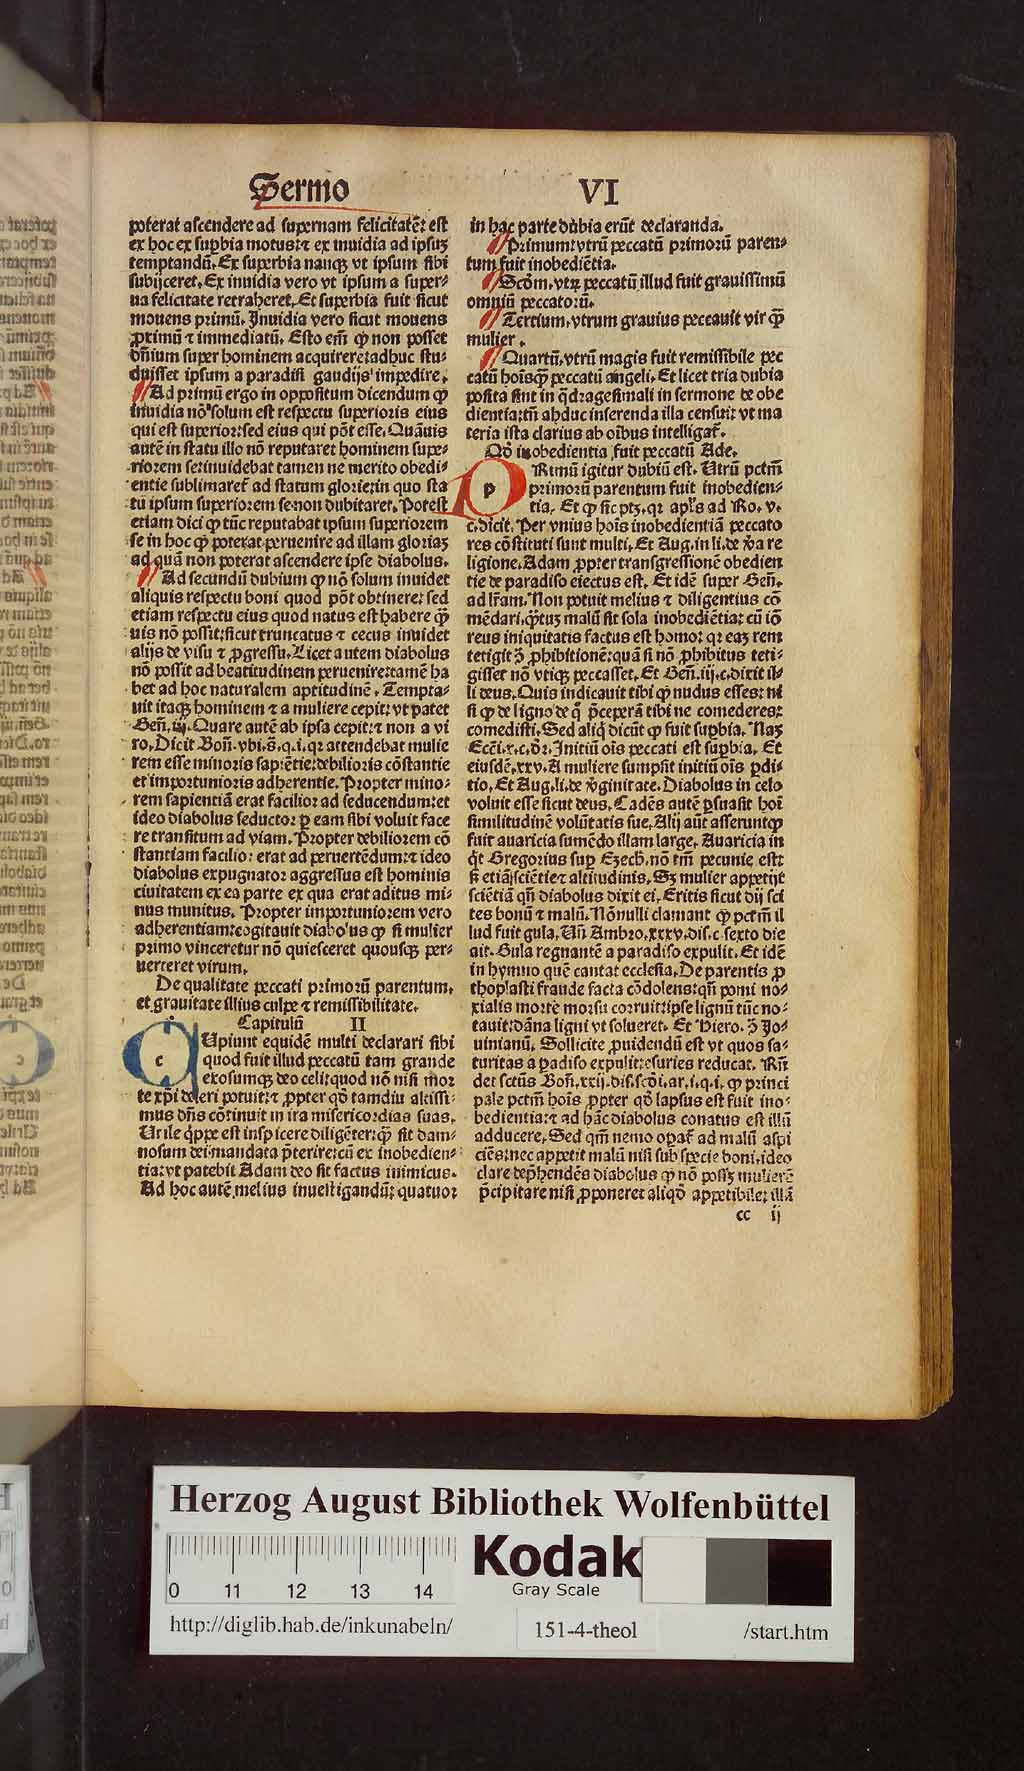 Sermo VI
poterat ascendere ad supernam felicitatē: est
ex hoc ex supbia motus: ⁊ ex inuidia ad ipsuꝫ
temptandū. Ex superbia nanqꝫ vt ipsum sibi
subijceret. Ex inuidia vero vt ipsum a super-
na felicitate retraheret. Et superbia fuit sicut
mouens primū. Inuidia vero sicut mouens
ꝓximū ⁊ immediatū. Esto em̄ ꝙ non posset
dn̄ium super hominem acquirere: adhuc stu-
duisset ipsum a paradisi gaudijs impedire.
Ad primū ergo in oppositum dicendum ꝙ
inuidia nō solum est respectu superioris eius
qui est superior: sed eius qui pōt esse. Quāuis
autē in statu illo nō reputaret hominem supe-
riorem se: inuidebat tamen ne merito obedi-
entie sublimaret̄ ad statum glorie: in quo sta
tu ipsum superiorem se non dubitaret. Potest
etiam dici ꝙ tūc reputabat ipsum superiorem
se in hoc ꝙ poterat peruenire ad illam gloriaꝫ
ad quā non poterat ascendere ipse diabolus.
Ad secundū dubium ꝙ nō solum inuidet
aliquis respectu boni quod pōt obtinere: sed
etiam respectu eius quod natus est habere ꝙ̄
uis nō possit: sicut truncatus ⁊ cecus inuidet
alijs de visu ⁊ ꝓgressu. Licet autem diabolus
nō possit ad beatitudinem peruenire: tamē ha
bet ad hoc naturalem aptitudinē. Tempta-
uit itaqꝫ hominem ⁊ a muliere cepit: vt patet
Gen̄. iij. Quare autē ab ipsa cepit: ⁊ non a vi
ro. Dicit Bon̄. vbi. s̄. q. i. qꝛ attendebat mulie
rem esse minoris sapiētie: debilioris cōstantie
et importunioris adherentie. Propter mino-
rem sapientiā erat facilior ad seducendum: et
ideo diabolus seductor ꝑ eam sibi voluit face
re transitum ad viam. Propter debiliorem cō
stantiam facilior erat ad peruertēdum: ⁊ ideo
diabolus expugnator aggressus est hominis
ciuitatem ex ea parte ex qua erat aditus mi-
nus munitus. Propter importuniorem vero
adherentiam: cogitauit diabolus ꝙ si mulier
primo vinceretur nō quiesceret quousqꝫ per-
uerteret virum.
De qualitate peccati primorū parentum.
et grauitate illius culpe ⁊ remissibilitate.
Capitulū II
c Upiunt equidē multi declarari sibi
quod fuit illud peccatū tam grande
exosumqꝫ deo celi: quod nō nisi mor
te xp̄i deleri potuit: ⁊ ꝓpter qd̄ tamdiu altissi-
mus dn̄s cōtinuit in ira misericordias suas.
Utile q̄ppe est inspicere diligēter: ꝙ̄ sit dam-
nosum dei mandata p̄terire: cū ex inobedien-
tia: vt patebit Adam deo sit factus inimicus.
Ad hoc autē melius inuestigandū: quatuor
in hac parte dubia erūt declaranda.
Primum: vtrū peccatū primorū paren-
tum fuit inobediētia.
Scd̄m. vtꝝ peccatū illud fuit grauissimū
omniū peccatorū.
Tertium. vtrum grauius peccauit vir ꝙ̄
mulier.
Quartū. vtrū magis fuit remissibile pec
catū hoīs ꝙ̄ peccatū angeli. Et licet tria dubia
posita sint in q̄dragesimali in sermone de obe
dientia: tn̄ adhuc inserenda illa censui: vt ma
teria ista clarius ab oībus intelligat̄.
Qd̄ inobedientia fuit peccatū Ade.
p Rimū igitur dubiū est. Utrū pctm̄
primorū parentum fuit inobedien-
tia. Et ꝙ sic ptꝫ. qꝛ apl̄s ad Ro. v.
c. dicit. Per vnius hoīs inobedientiā peccato
res cōstituti sunt multi. Et Aug. in li. de v̄a re
ligione. Adam ꝓpter transgressionē obedien
tie de paradiso eiectus est. Et idē super Gen̄.
ad lr̄am. Non potuit melius ⁊ diligentius cō
mēdari. q̄tuꝫ malū sit sola inobediētia: cū iō
reus iniquitatis factus est homo: qꝛ eaꝫ rem
tetigit ꝯ̄ ꝓhibitionē: quā si nō ꝓhibitus teti-
gisset nō vtiqꝫ peccasset. Et Gen̄. iij. c. dixit il-
li deus. Quis indicauit tibi ꝙ nudus esses: ni
si ꝙ de ligno de q̄ p̄ceperā tibi ne comederes:
comedisti. Sed aliq̄ dicūt ꝙ fuit supbia. Naꝫ
Ecci. x. c. dr̄. Initiū oīs peccati est supbia. Et
eiusdē. xxv. A muliere sumpsit initiū oīs ꝑdi-
tio. Et Aug. li. de v̄ginitate. Diabolus in celo
voluit esse sicut deus. Cadēs autē ꝑsuasit hoī
similitudinē volūtatis sue. Alij aūt asserunt ꝙ
fuit auaricia sumēdo illam large. Auaricia in
q̄t Gregorius sup Ezech̄. nō tm̄ pecunie est:
sꝫ etiā sciētie ⁊ altitudinis. Sꝫ mulier appetijt
sciētiā qn̄ diabolus dixit ei. Eritis sicut dij sci
tes bonū ⁊ malū. Nōnulli clamant ꝙ pctm̄ il
lud fuit gula. Un̄ Ambro. xxxv. dis. c. sexto die
ait. Gula regnantē a paradiso expulit. Et idē
in hymno quē cantat ecclesia. De parentis ꝓ
thoplasti fraude facta cōdolens: qn̄ pomi no-
xialis morte morsu corruit: ipse lignū tūc no-
tauit: dāna ligni vt solueret. Et Hiero. ꝯ̄ Jo-
uinianū. Sollicite ꝓuidendū est vt quos sa-
turitas a ꝑadiso expulit: esuries reducat. Rn̄
det sctūs Bon̄. xxij. dis. scd̄i. ar. i. q. i. ꝙ princi
pale pctm̄ hoīs ꝓpter qd̄ lapsus est fuit ino-
bedientia: ⁊ ad hāc diabolus conatus est illū
adducere. Sed qm̄ nemo opat̄ ad malū aspi
ciēs: nec appetit malū nisi sub specie boni. ideo
clare dep̄hendēs diabolus ꝙ nō possꝫ mulierē
p̄cipitare nisi ꝓponeret aliqd̄ appetibile: illā
cc ij
Herzog August Bibliothek Wolfenbüttel
Kodak
Gray Scale
0 11 12 13 14
http://diglib.hab.de/inkunabeln/ 151-4-theol /start.htm